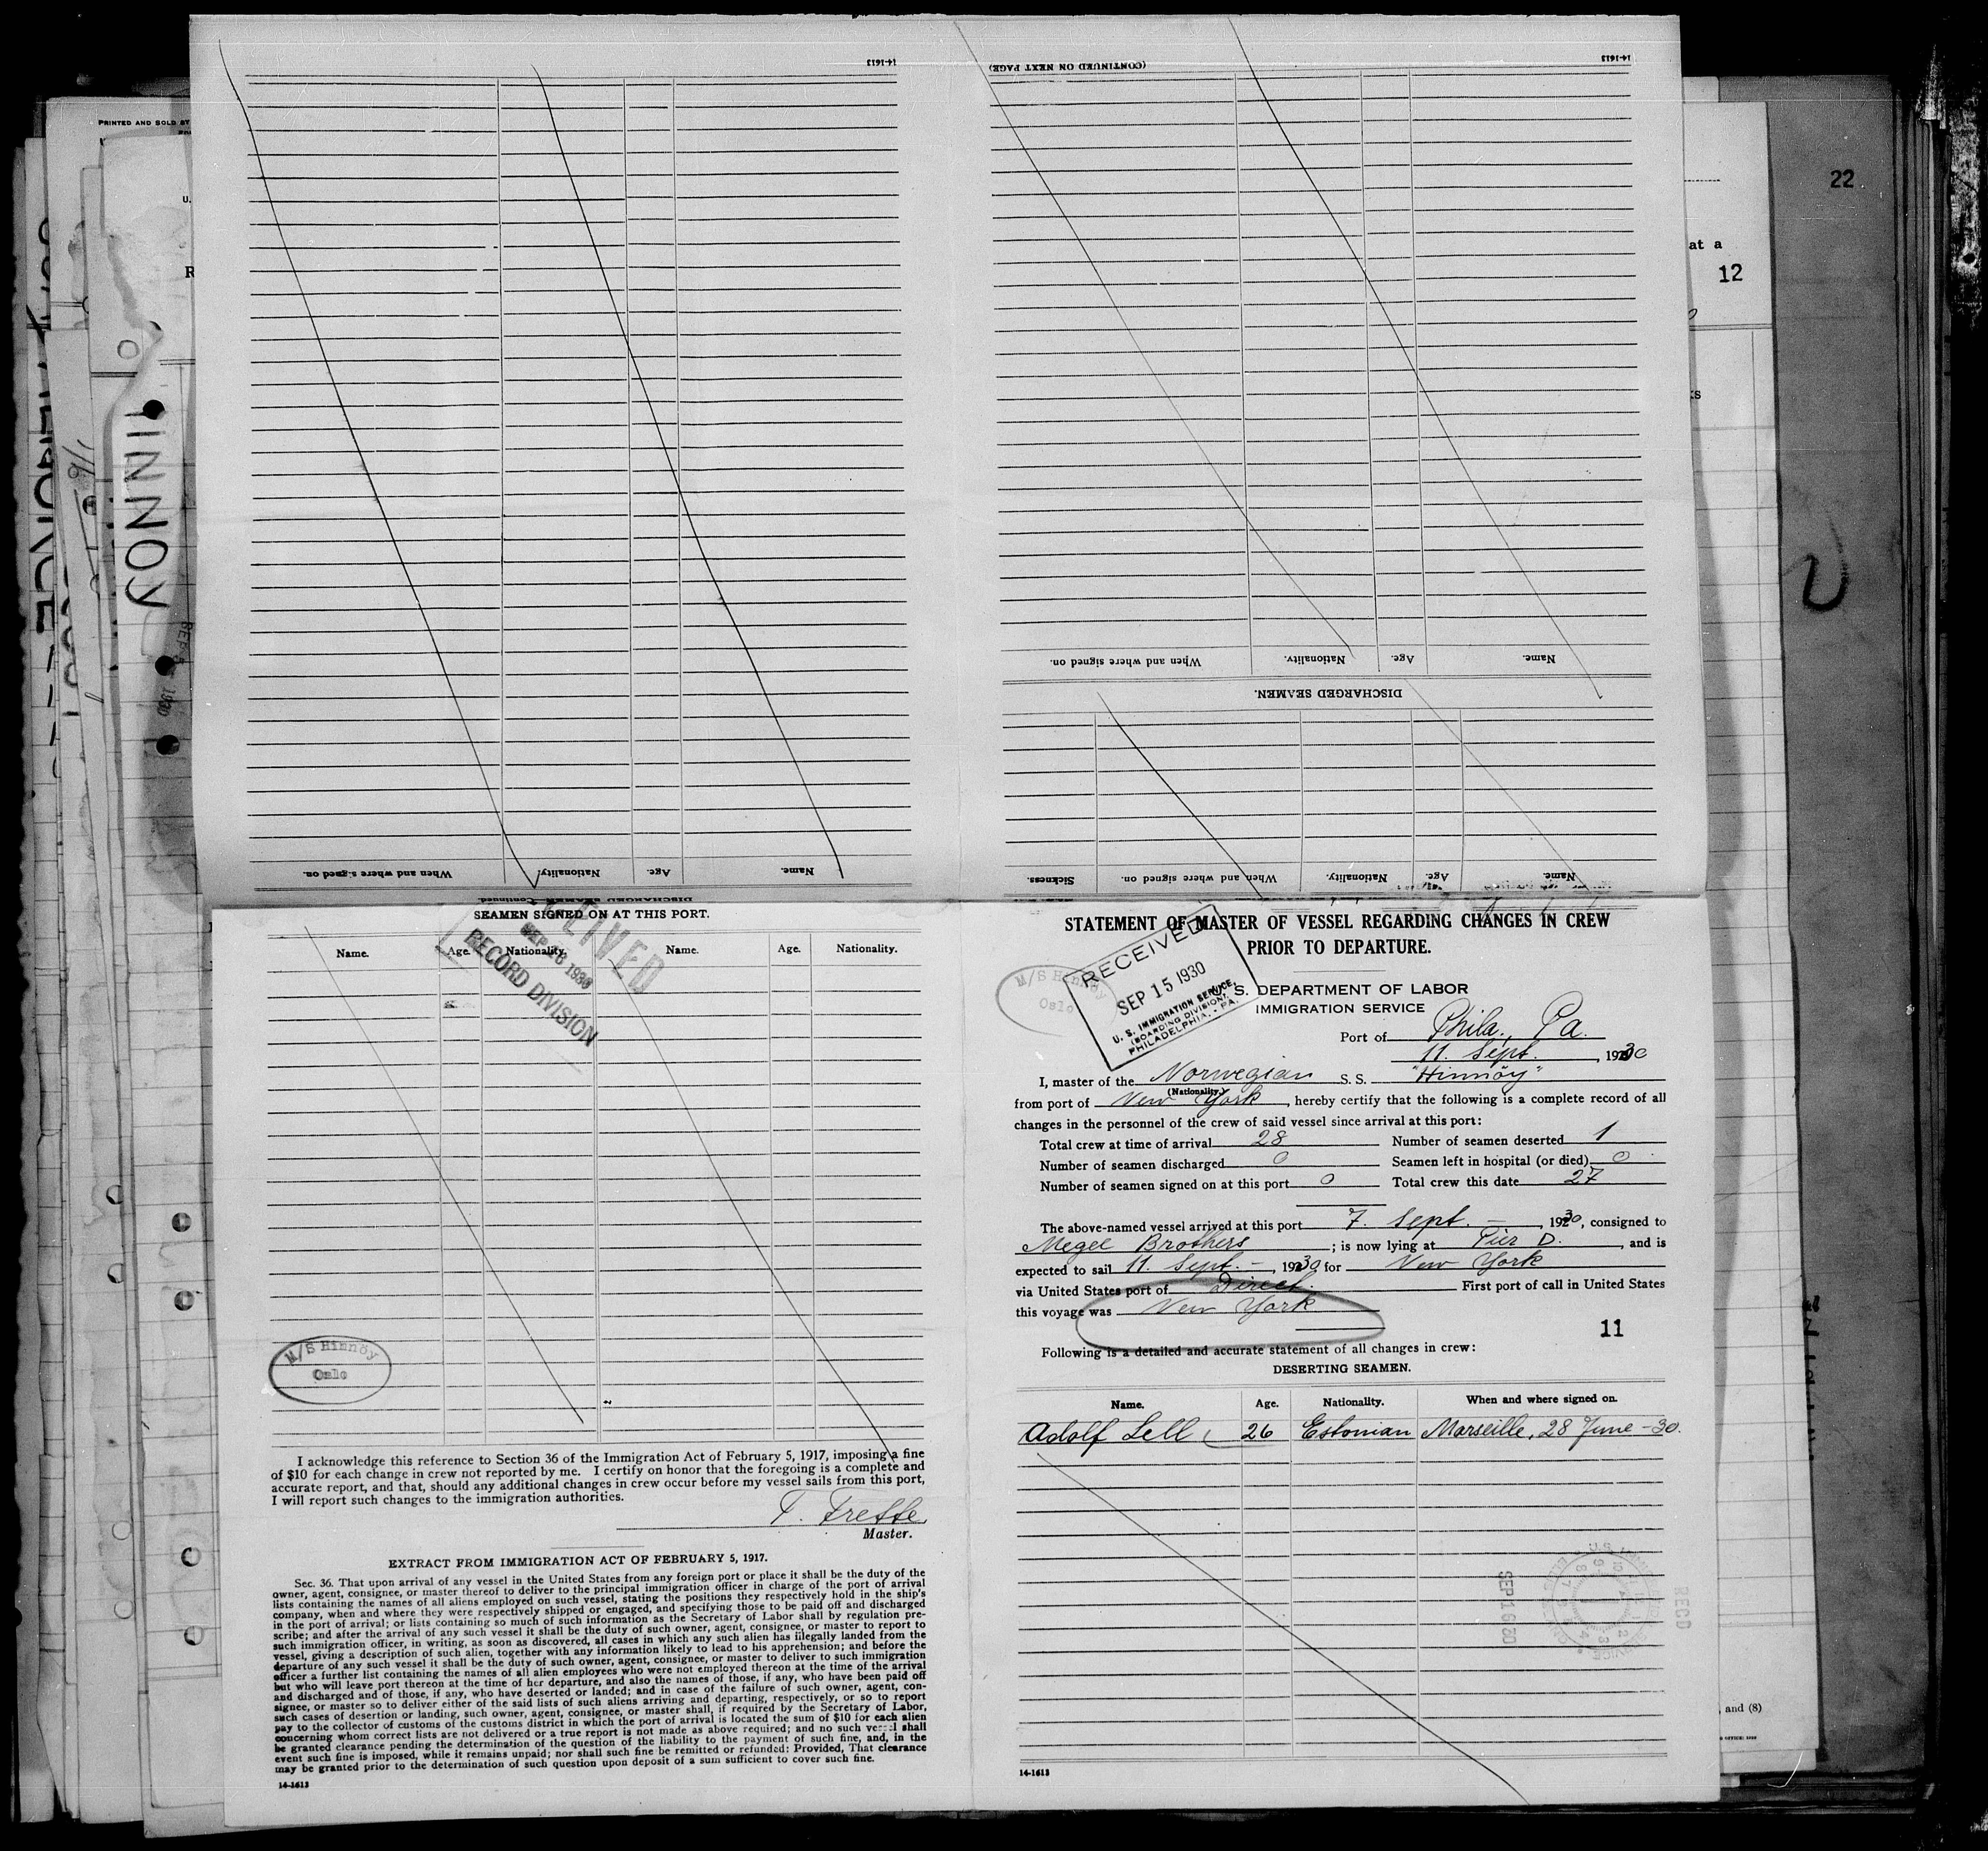 14-1613
(CONTINUED ON NEXT PAGE)
14-1613
PRINTED AND SOLD BY
22
at a
12
HINNOY
When and where signed on.
Nationality.
Age.
Name.
DISCHARGED SEAMEN.
When and where signed on.
Nationality.
Age.
Name.
Sickness.
When and where signed on.
Nationality.
Age.
Name.
DISCHARGED SEAMEN—Continued.
SEAMEN SIGNED ON AT THIS PORT.
Name. Age. Nationality. Name. Age. Nationality.
RECEIVED
SEP 1930
RECORD DIVISION
M/S Hinnöy
Oslo
I acknowledge this reference to Section 36 of the Immigration Act of February 5, 1917, imposing a fine
of $10 for each change in crew not reported by me. I certify on honor that the foregoing is a complete and
accurate report, and that, should any additional changes in crew occur before my vessel sails from this port,
I will report such changes to the immigration authorities.
T. Frette
Master.
EXTRACT FROM IMMIGRATION ACT OF FEBRUARY 5, 1917.
Sec. 36. That upon arrival of any vessel in the United States from any foreign port or place it shall be the duty of the
owner, agent, consignee, or master thereof to deliver to the principal immigration officer in charge of the port of arrival
lists containing the names of all aliens employed on such vessel, stating the positions they respectively hold in the ship's
company, when and where they were respectively shipped or engaged, and specifying those to be paid off and discharged
in the port of arrival; or lists containing so much of such information as the Secretary of Labor shall by regulation pre-
scribe; and after the arrival of any such vessel it shall be the duty of such owner, agent, consignee, or master to report to
such immigration officer, in writing, as soon as discovered, all cases in which any such alien has illegally landed from the
vessel, giving a description of such alien, together with any information likely to lead to his apprehension; and before the
departure of any such vessel it shall be the duty of such owner, agent, consignee, or master to deliver to such immigration
officer a further list containing the names of all alien employees who were not employed thereon at the time of the arrival
but who will leave port thereon at the time of her departure, and also the names of those, if any, who have been paid off
and discharged and of those, if any, who have deserted or landed; and in case of the failure of such owner, agent, con-
signee, or master so to deliver either of the said lists of such aliens arriving and departing, respectively, or so to report
such cases of desertion or landing, such owner, agent, consignee, or master shall, if required by the Secretary of Labor,
pay to the collector of customs of the customs district in which the port of arrival is located the sum of $10 for each alien
concerning whom correct lists are not delivered or a true report is not made as above required; and no such vessel shall
be granted clearance pending the determination of the question of the liability to the payment of such fine, and, in the
event such fine is imposed, while it remains unpaid; nor shall such fine be remitted or refunded: Provided, That clearance
may be granted prior to the determination of such question upon deposit of a sum sufficient to cover such fine.
14-1613
STATEMENT OF MASTER OF VESSEL REGARDING CHANGES IN CREW
PRIOR TO DEPARTURE.
M/S Hinnöy
Oslo
RECEIVED
SEP 15 1930
U. S. IMMIGRATION SERVICE,
(BOARDING DIVISION),
PHILADELPHIA, - PA.
U. S. DEPARTMENT OF LABOR
IMMIGRATION SERVICE
Port of Phila, Pa.
11. Sept. , 1930
I, master of the Norwegian S. S. "Hinnöy"
(Nationality)
from port of New York, hereby certify that the following is a complete record of all
changes in the personnel of the crew of said vessel since arrival at this port:
Total crew at time of arrival 28 Number of seamen deserted 1
Number of seamen discharged 0 Seamen left in hospital (or died) 0
Number of seamen signed on at this port 0 Total crew this date 27
The above-named vessel arrived at this port 7. Sept. — , 1930, consigned to
Megee Brothers ; is now lying at Pier D. , and is
expected to sail 11. Sept. — , 1930 for New York
via United States port of Direct. First port of call in United States
this voyage was New York
11
Following is a detailed and accurate statement of all changes in crew:
DESERTING SEAMEN.
Name. Age. Nationality. When and where signed on.
Adolf Lell 26 Estonian Marseille, 28 June -30.
SEP 16 30
RECD
14-1613
, and (8)